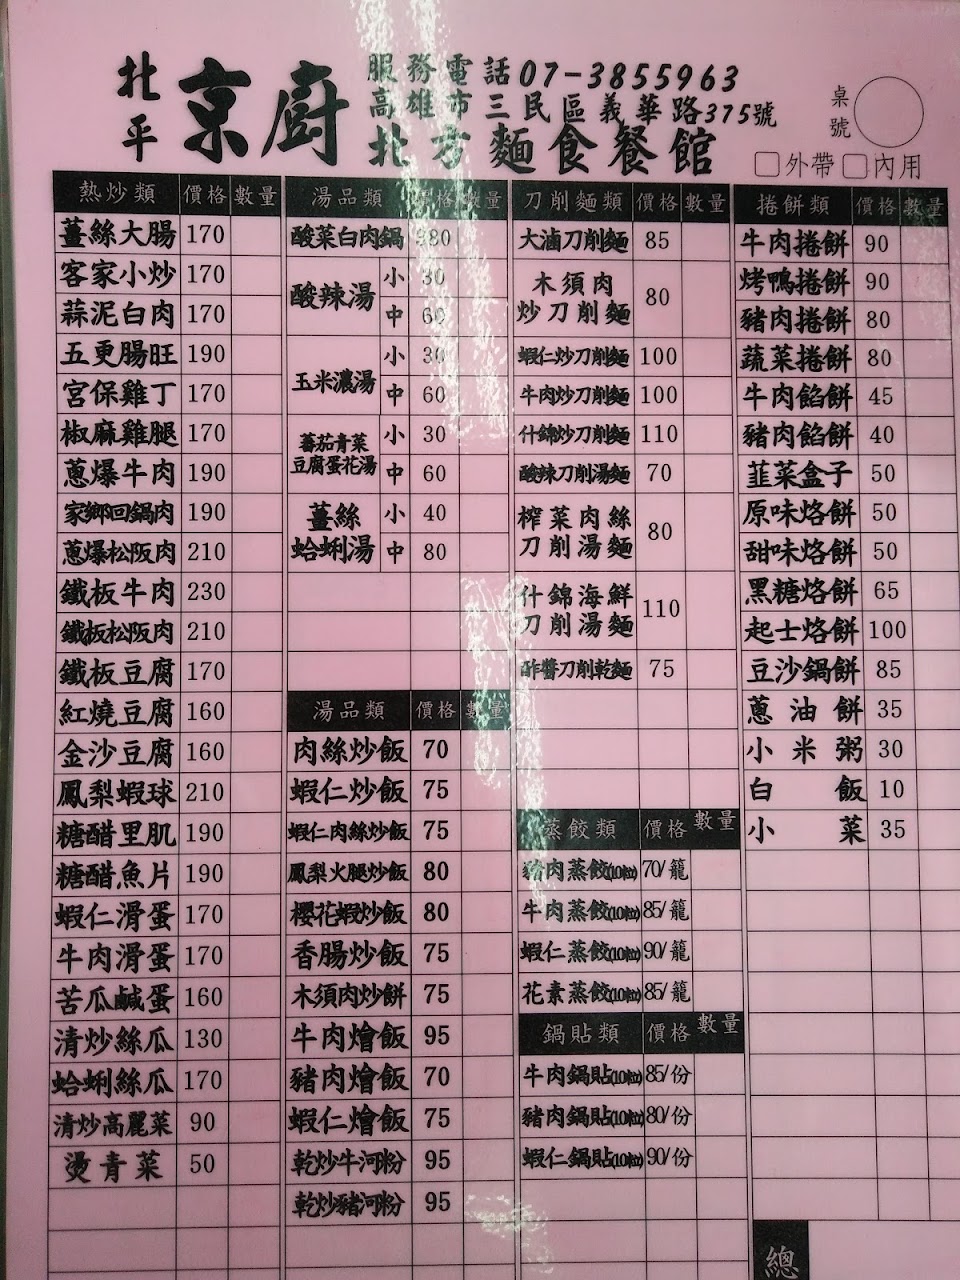 北平
京廚
服務電話07-3855963
高雄市三民區義華路375號
北方麵食餐館
桌號
外帶 內用
熱炒類 價格 數量
薑絲大腸 170
客家小炒 170
蒜泥白肉 170
五更腸旺 190
宮保雞丁 170
椒麻雞腿 170
蔥爆牛肉 190
家鄉回鍋肉 190
蔥爆松阪肉 210
鐵板牛肉 230
鐵板松阪肉 210
鐵板豆腐 170
紅燒豆腐 160
金沙豆腐 160
鳳梨蝦球 210
糖醋里肌 190
糖醋魚片 190
蝦仁滑蛋 170
牛肉滑蛋 170
苦瓜鹹蛋 160
清炒絲瓜 130
蛤蜊絲瓜 170
清炒高麗菜 90
燙青菜 50
湯品類 價格 數量
酸菜白肉鍋
酸辣湯 小 30
中 60
玉米濃湯 小 30
中 60
蕃茄青菜
豆腐蛋花湯 小 30
中 60
薑絲
蛤蜊湯 小 40
中 80
湯品類 價格 數量
肉絲炒飯 70
蝦仁炒飯 75
蝦仁肉絲炒飯 75
鳳梨火腿炒飯 80
櫻花蝦炒飯 80
香腸炒飯 75
木須肉炒餅 75
牛肉燴飯 95
豬肉燴飯 70
蝦仁燴飯 75
乾炒牛河粉 95
乾炒豬河粉 95
刀削麵類 價格 數量
大滷刀削麵 85
木須肉
炒刀削麵 80
蝦仁炒刀削麵 100
牛肉炒刀削麵 100
什錦炒刀削麵 110
酸辣刀削湯麵 70
榨菜肉絲
刀削湯麵 80
什錦海鮮
刀削湯麵 110
酢醬刀削乾麵 75
蒸餃類 價格 數量
豬肉蒸餃(10粒) 70/籠
牛肉蒸餃(10粒) 85/籠
蝦仁蒸餃(10粒) 90/籠
花素蒸餃(10粒) 85/籠
鍋貼類 價格 數量
牛肉鍋貼(10粒) 85/份
豬肉鍋貼(10粒) 80/份
蝦仁鍋貼(10粒) 90/份
捲餅類 價格 數量
牛肉捲餅 90
烤鴨捲餅 90
豬肉捲餅 80
蔬菜捲餅 80
牛肉餡餅 45
豬肉餡餅 40
韮菜盒子 50
原味烙餅 50
甜味烙餅 50
黑糖烙餅 65
起士烙餅 100
豆沙鍋餅 85
蔥油餅 35
小米粥 30
白飯 10
小菜 35
總